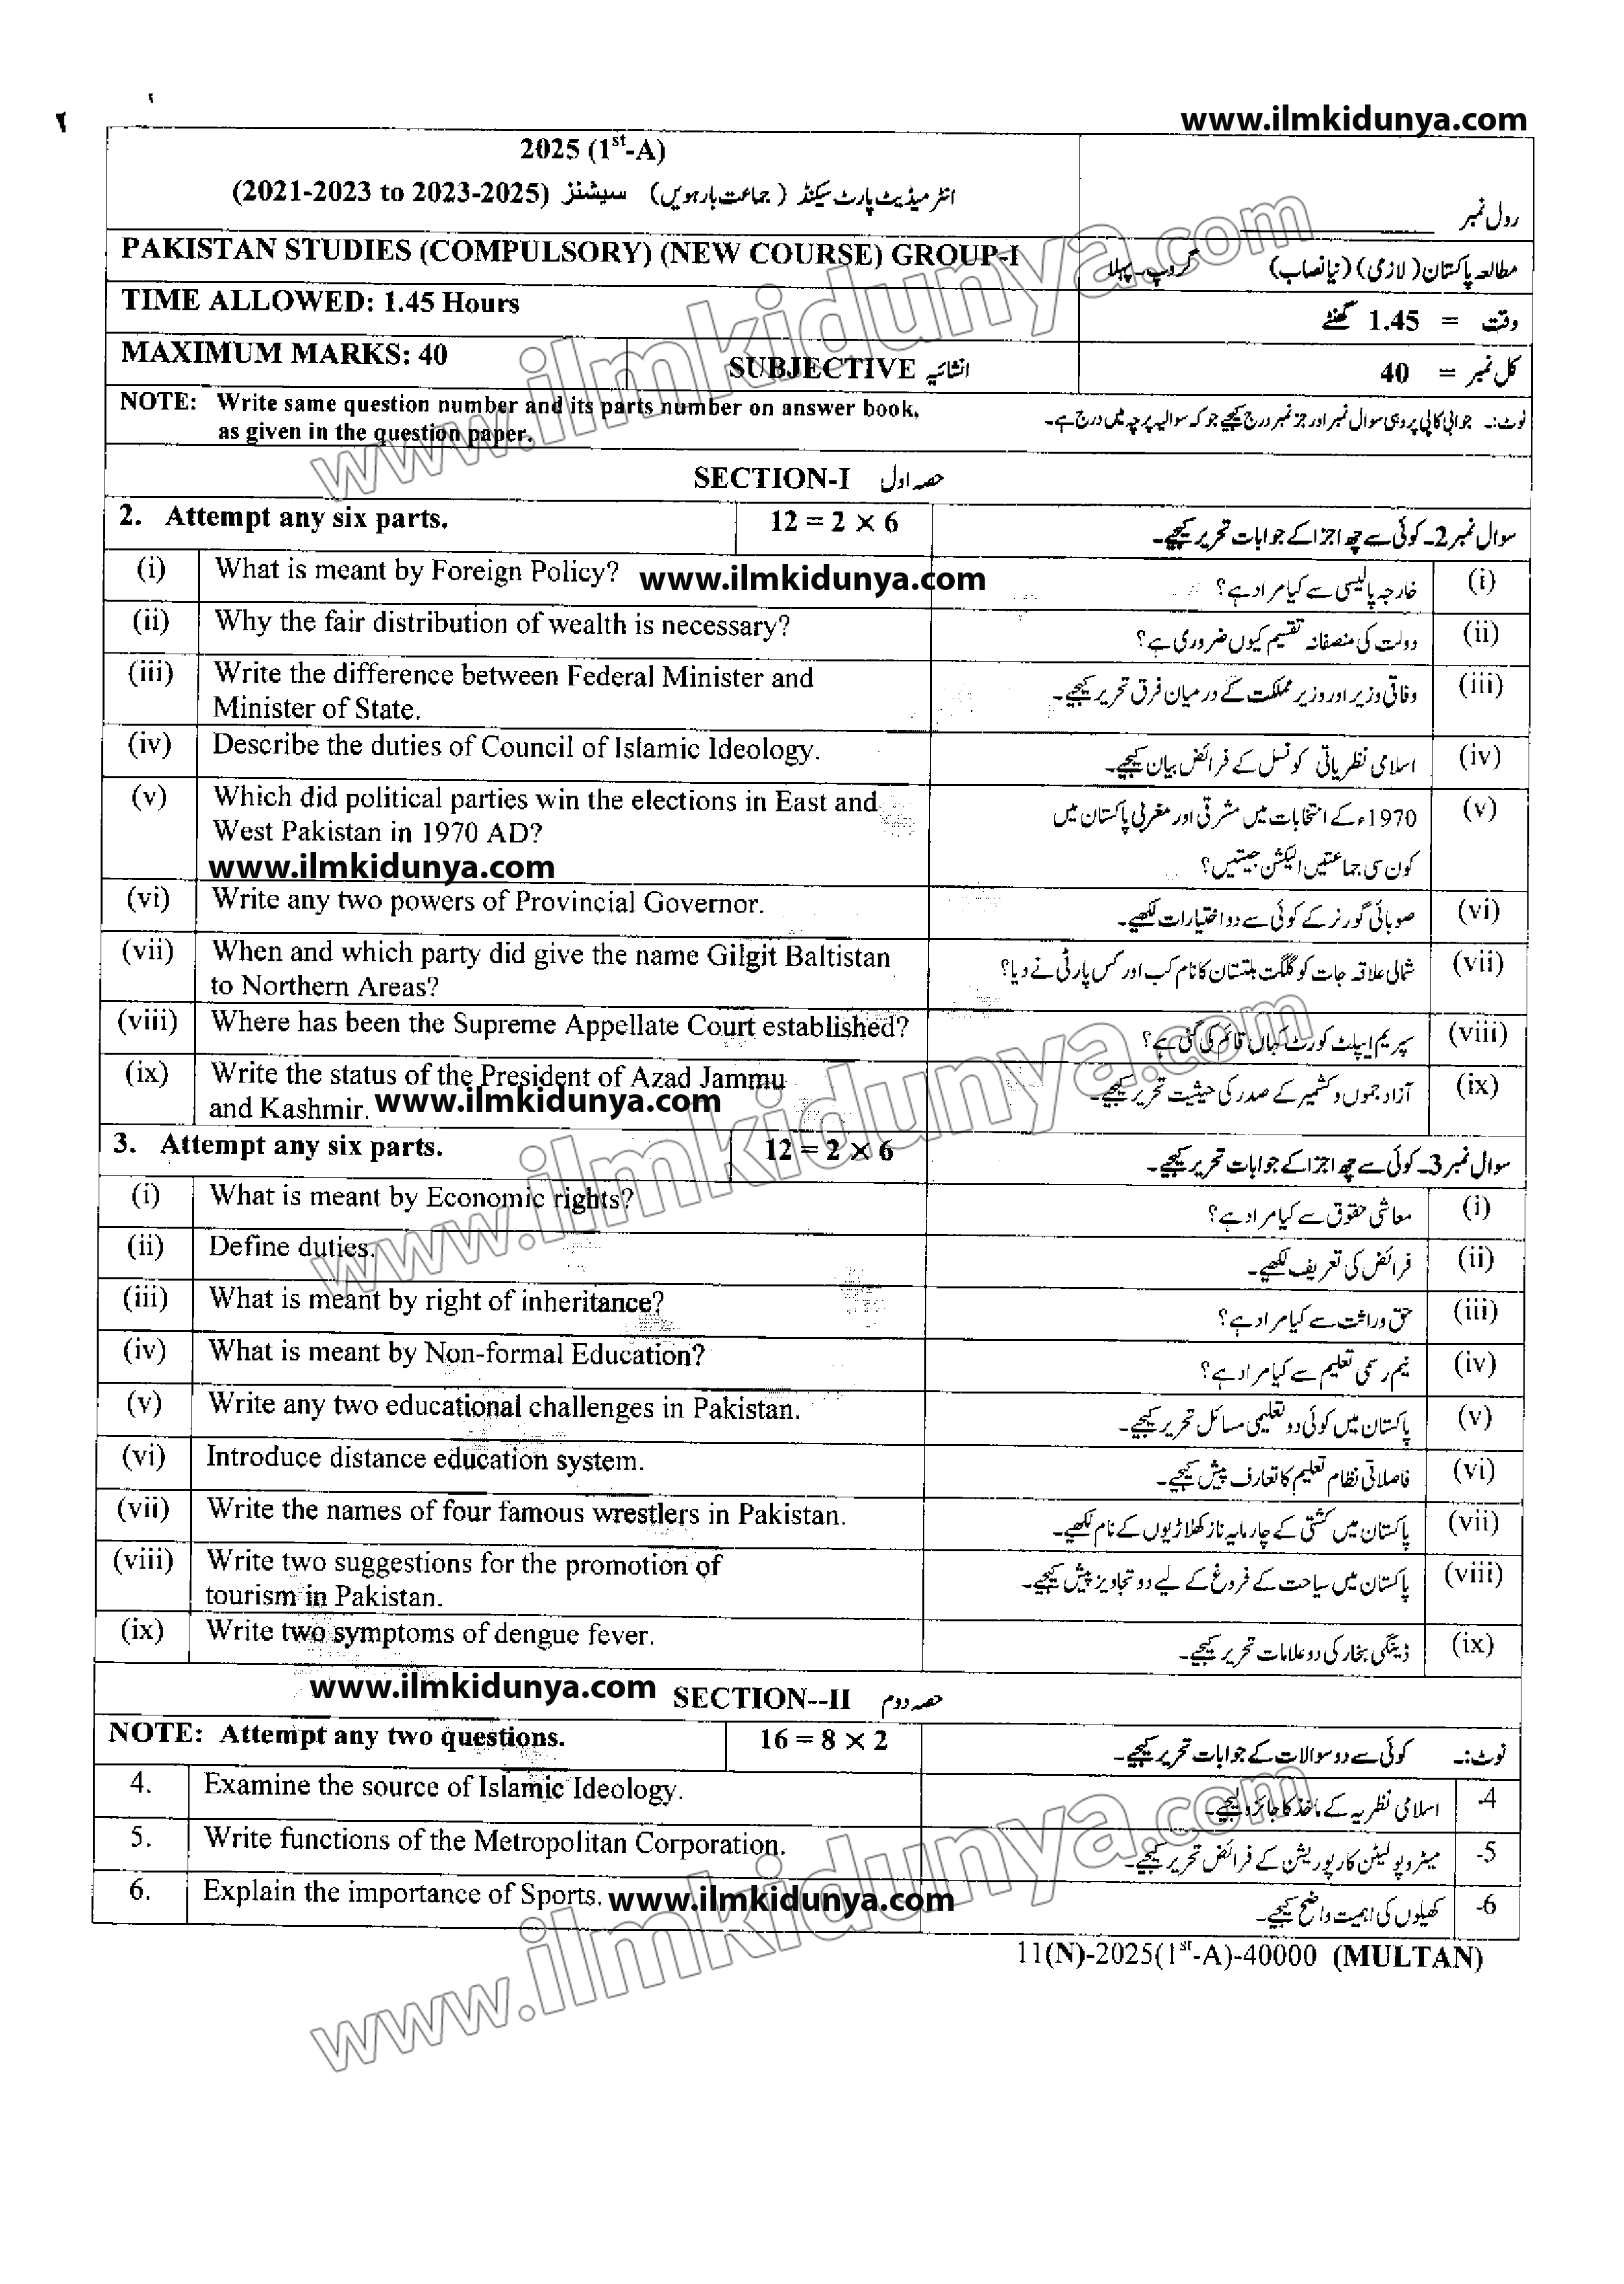 www.ilmkidunya.com
2025 (1st-A)
انٹرمیڈیٹ پارٹ سیکنڈ (جماعت بارہویں) سیشنز (2021-2023 to 2023-2025)
رول نمبر
PAKISTAN STUDIES (COMPULSORY) (NEW COURSE) GROUP-I
مطالعہ پاکستان (لازمی) (نیا نصاب) گروپ۔ پہلا
TIME ALLOWED: 1.45 Hours
وقت = 1.45 گھنٹے
MAXIMUM MARKS: 40
SUBJECTIVE انشائیہ
کل نمبر = 40
NOTE: Write same question number and its parts number on answer book,
as given in the question paper.
نوٹ:۔ جوابی کاپی پر وہی سوال نمبر اور جز نمبر درج کیجیے جو کہ سوالیہ پرچہ میں درج ہے۔
SECTION-I حصہ اول
2. Attempt any six parts.
12 = 2 × 6
سوال نمبر 2۔ کوئی سے چھ اجزا کے جوابات تحریر کیجیے۔
(i) What is meant by Foreign Policy? www.ilmkidunya.com
خارجہ پالیسی سے کیا مراد ہے؟ (i)
(ii) Why the fair distribution of wealth is necessary?
دولت کی منصفانہ تقسیم کیوں ضروری ہے؟ (ii)
(iii) Write the difference between Federal Minister and
Minister of State.
وفاقی وزیر اور وزیر مملکت کے درمیان فرق تحریر کیجیے۔ (iii)
(iv) Describe the duties of Council of Islamic Ideology.
اسلامی نظریاتی کونسل کے فرائض بیان کیجیے۔ (iv)
(v) Which did political parties win the elections in East and
West Pakistan in 1970 AD?
www.ilmkidunya.com
1970ء کے انتخابات میں مشرقی اور مغربی پاکستان میں (v)
کون سی جماعتیں الیکشن جیتیں؟
(vi) Write any two powers of Provincial Governor.
صوبائی گورنر کے کوئی سے دو اختیارات لکھیے۔ (vi)
(vii) When and which party did give the name Gilgit Baltistan
to Northern Areas?
شمالی علاقہ جات کو گلگت بلتستان کا نام کب اور کس پارٹی نے دیا؟ (vii)
(viii) Where has been the Supreme Appellate Court established?
سپریم اپیلٹ کورٹ کہاں قائم کی گئی ہے؟ (viii)
(ix) Write the status of the President of Azad Jammu
and Kashmir. www.ilmkidunya.com
آزاد جموں و کشمیر کے صدر کی حیثیت تحریر کیجیے۔ (ix)
3. Attempt any six parts.
12 = 2 × 6
سوال نمبر 3۔ کوئی سے چھ اجزا کے جوابات تحریر کیجیے۔
(i) What is meant by Economic rights?
معاشی حقوق سے کیا مراد ہے؟ (i)
(ii) Define duties.
فرائض کی تعریف لکھیے۔ (ii)
(iii) What is meant by right of inheritance?
حق وراثت سے کیا مراد ہے؟ (iii)
(iv) What is meant by Non-formal Education?
نیم رسمی تعلیم سے کیا مراد ہے؟ (iv)
(v) Write any two educational challenges in Pakistan.
پاکستان میں کوئی دو تعلیمی مسائل تحریر کیجیے۔ (v)
(vi) Introduce distance education system.
فاصلاتی نظام تعلیم کا تعارف پیش کیجیے۔ (vi)
(vii) Write the names of four famous wrestlers in Pakistan.
پاکستان میں کشتی کے چار مایہ ناز کھلاڑیوں کے نام لکھیے۔ (vii)
(viii) Write two suggestions for the promotion of
tourism in Pakistan.
پاکستان میں سیاحت کے فروغ کے لیے دو تجاویز پیش کیجیے۔ (viii)
(ix) Write two symptoms of dengue fever.
ڈینگی بخار کی دو علامات تحریر کیجیے۔ (ix)
www.ilmkidunya.com SECTION--II حصہ دوم
NOTE: Attempt any two questions.
16 = 8 × 2
نوٹ:۔ کوئی سے دو سوالات کے جوابات تحریر کیجیے۔
4. Examine the source of Islamic Ideology.
اسلامی نظریہ کے ماخذ کا جائزہ لیجیے۔ -4
5. Write functions of the Metropolitan Corporation.
میٹروپولیٹن کارپوریشن کے فرائض تحریر کیجیے۔ -5
6. Explain the importance of Sports. www.ilmkidunya.com
کھیلوں کی اہمیت واضح کیجیے۔ -6
11(N)-2025(1st-A)-40000 (MULTAN)
www.ilmkidunya.com
www.ilmkidunya.com
www.ilmkidunya.com